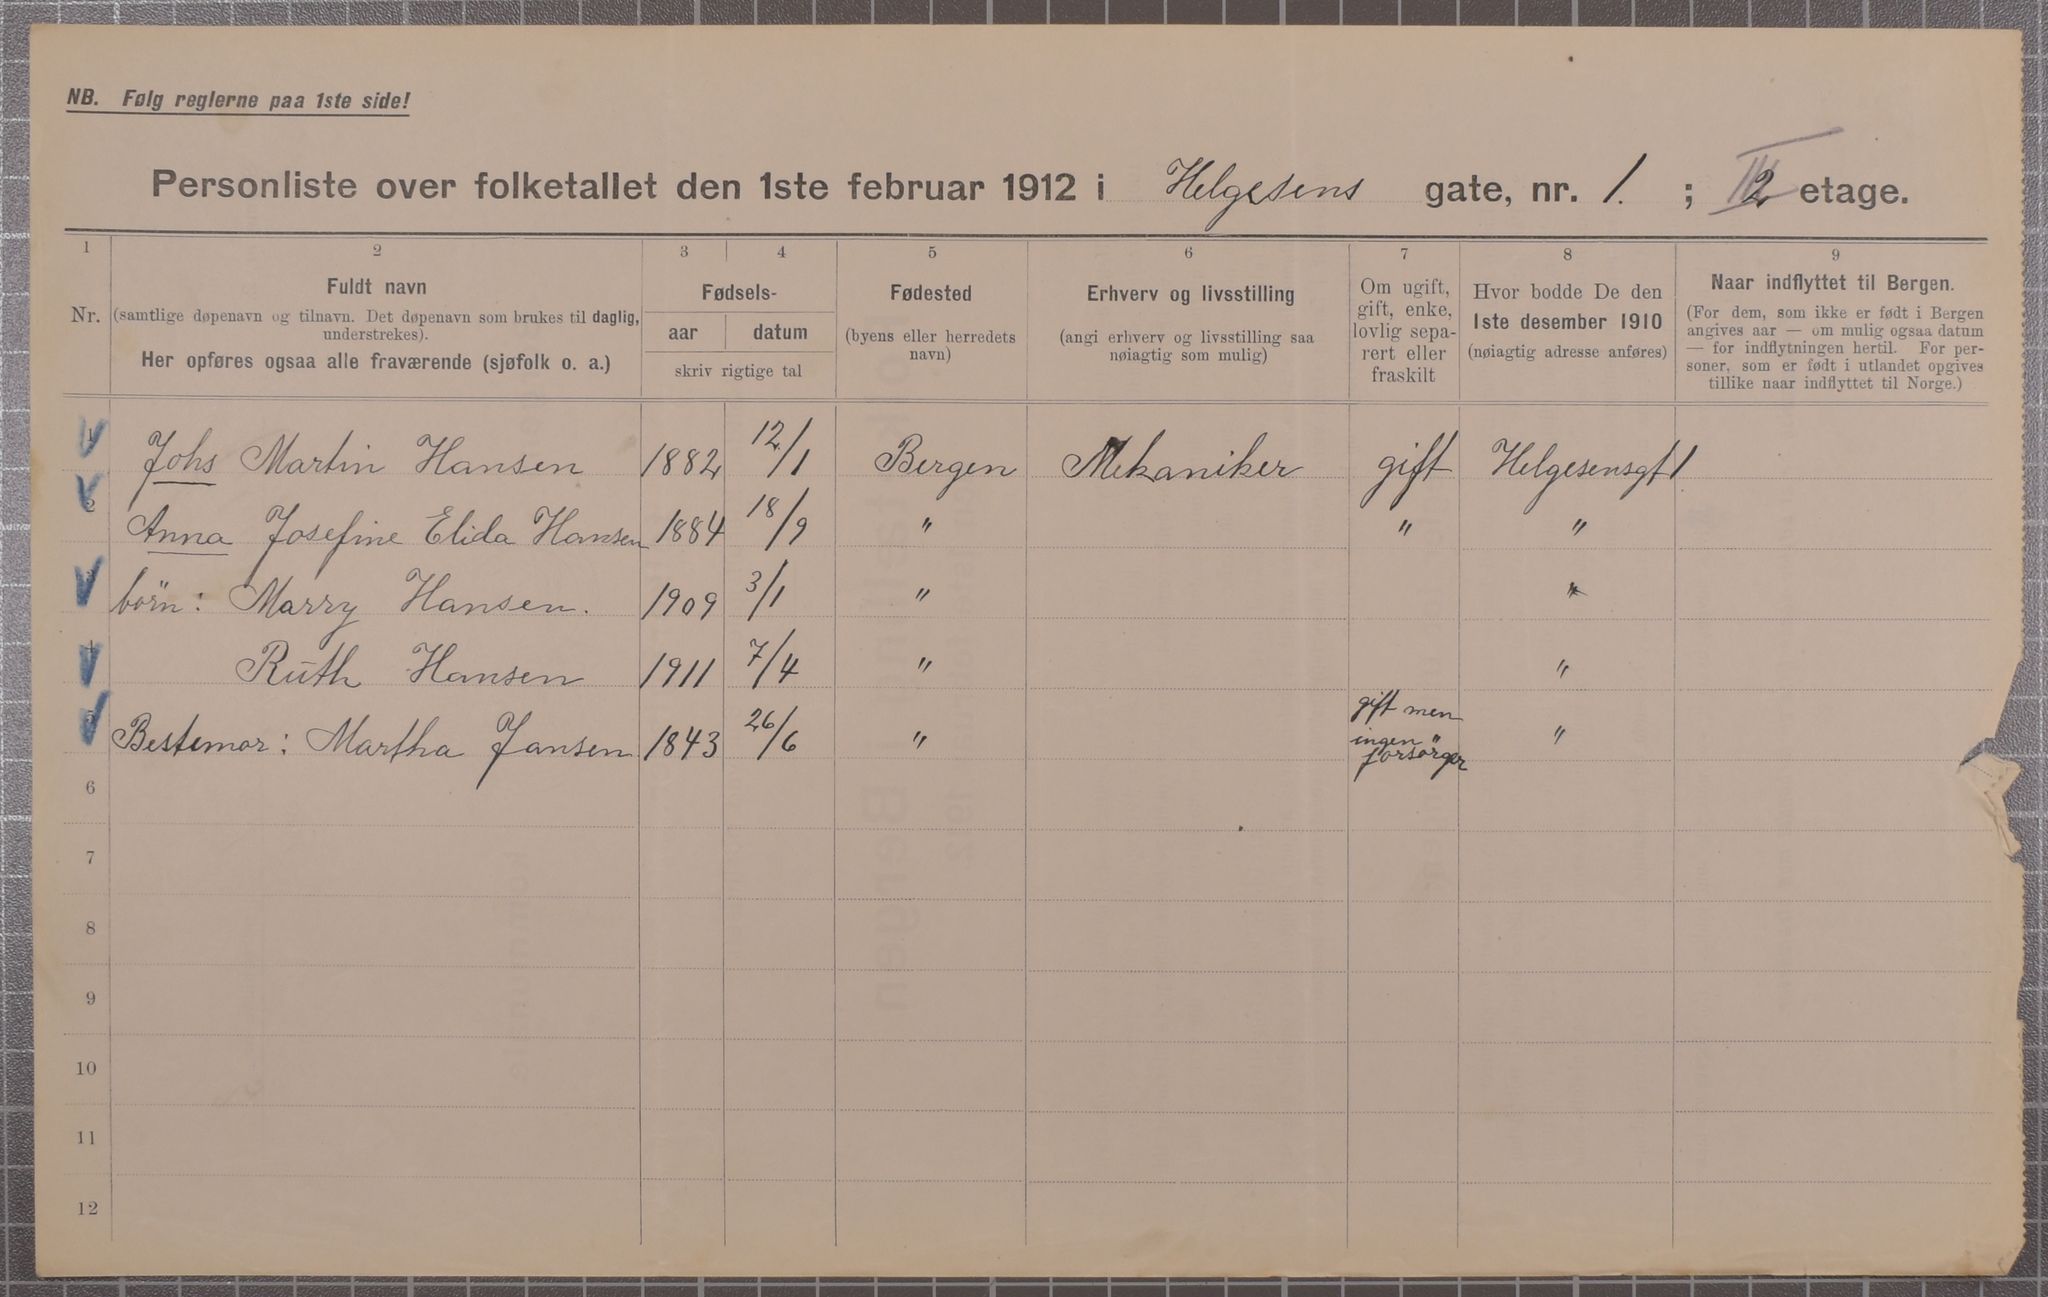 NB. Følg reglerne paa 1ste side!
Personliste over folketallet den 1ste februar 1912 i Helgesens gate, nr. 1. ; III 2 etage.
1 2 3 4 5 6 7 8 9
Nr.
Fuldt navn
(samtlige døpenavn og tilnavn. Det døpenavn som brukes til daglig,
understrekes).
Her opføres ogsaa alle fraværende (sjøfolk o. a.)
Fødsels-
aar datum
skriv rigtige tal
Fødested
(byens eller herredets
navn)
Erhverv og livsstilling
(angi erhverv og livsstilling saa
nøiagtig som mulig)
Om ugift,
gift, enke,
lovlig sepa-
rert eller
fraskilt
Hvor bodde De den
1ste desember 1910
(nøiagtig adresse anføres)
Naar indflyttet til Bergen.
(For dem, som ikke er født i Bergen
angives aar — om mulig ogsaa datum
— for indflytningen hertil. For per-
soner, som er født i utlandet opgives
tillike naar indflyttet til Norge.)
1 Johs Martin Hansen 1882 12/1 Bergen Mekaniker gift Helgesensgt 1
2 Anna Josefine Elida Hansen 1884 18/9 " " "
3 börn: Marry Hansen. 1909 3/1 " "
4 Ruth Hansen 1911 7/4 " "
5 Bestemor: Martha Jansen 1843 26/6 " gift men ingen forsörger "
6
7
8
9
10
11
12